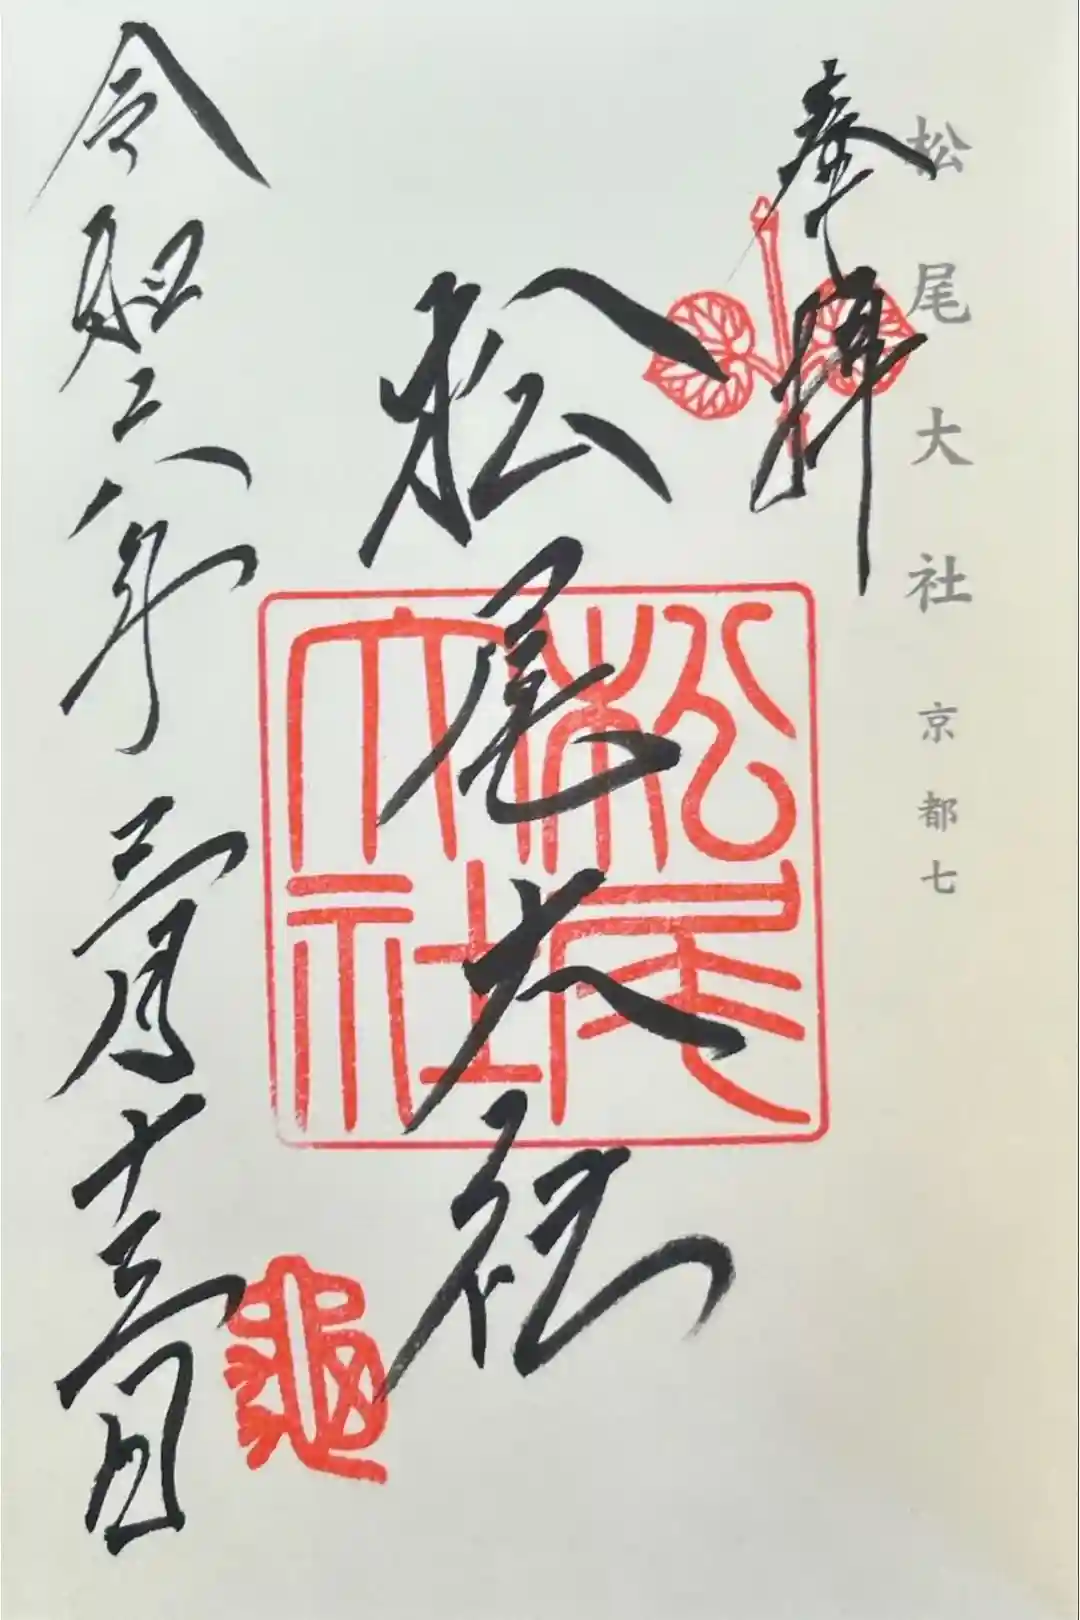 松尾大社 京都七
奉拝
松尾大社
松尾
大社
令和六年三月十三日